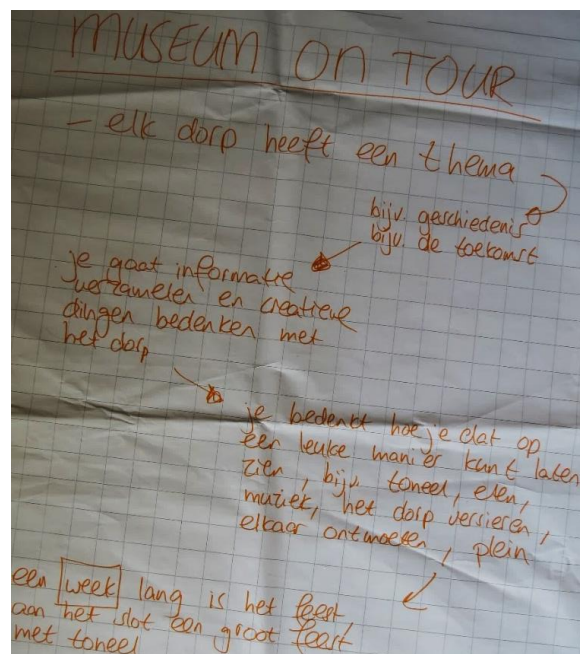 MUSEUM ON TOUR
- elk dorp heeft een thema
bijv. geschiedenis
bijv. de toekomst
je gaat informatie
verzamelen en creatieve
dingen bedenken met
het dorp
je bedenkt hoe je dat op
een leuke manier kunt laten
zien, bijv. toneel, eten,
muziek, het dorp versieren,
elkaar ontmoeten, plein
een week lang is het feest,
aan het slot een groot feest
met toneel